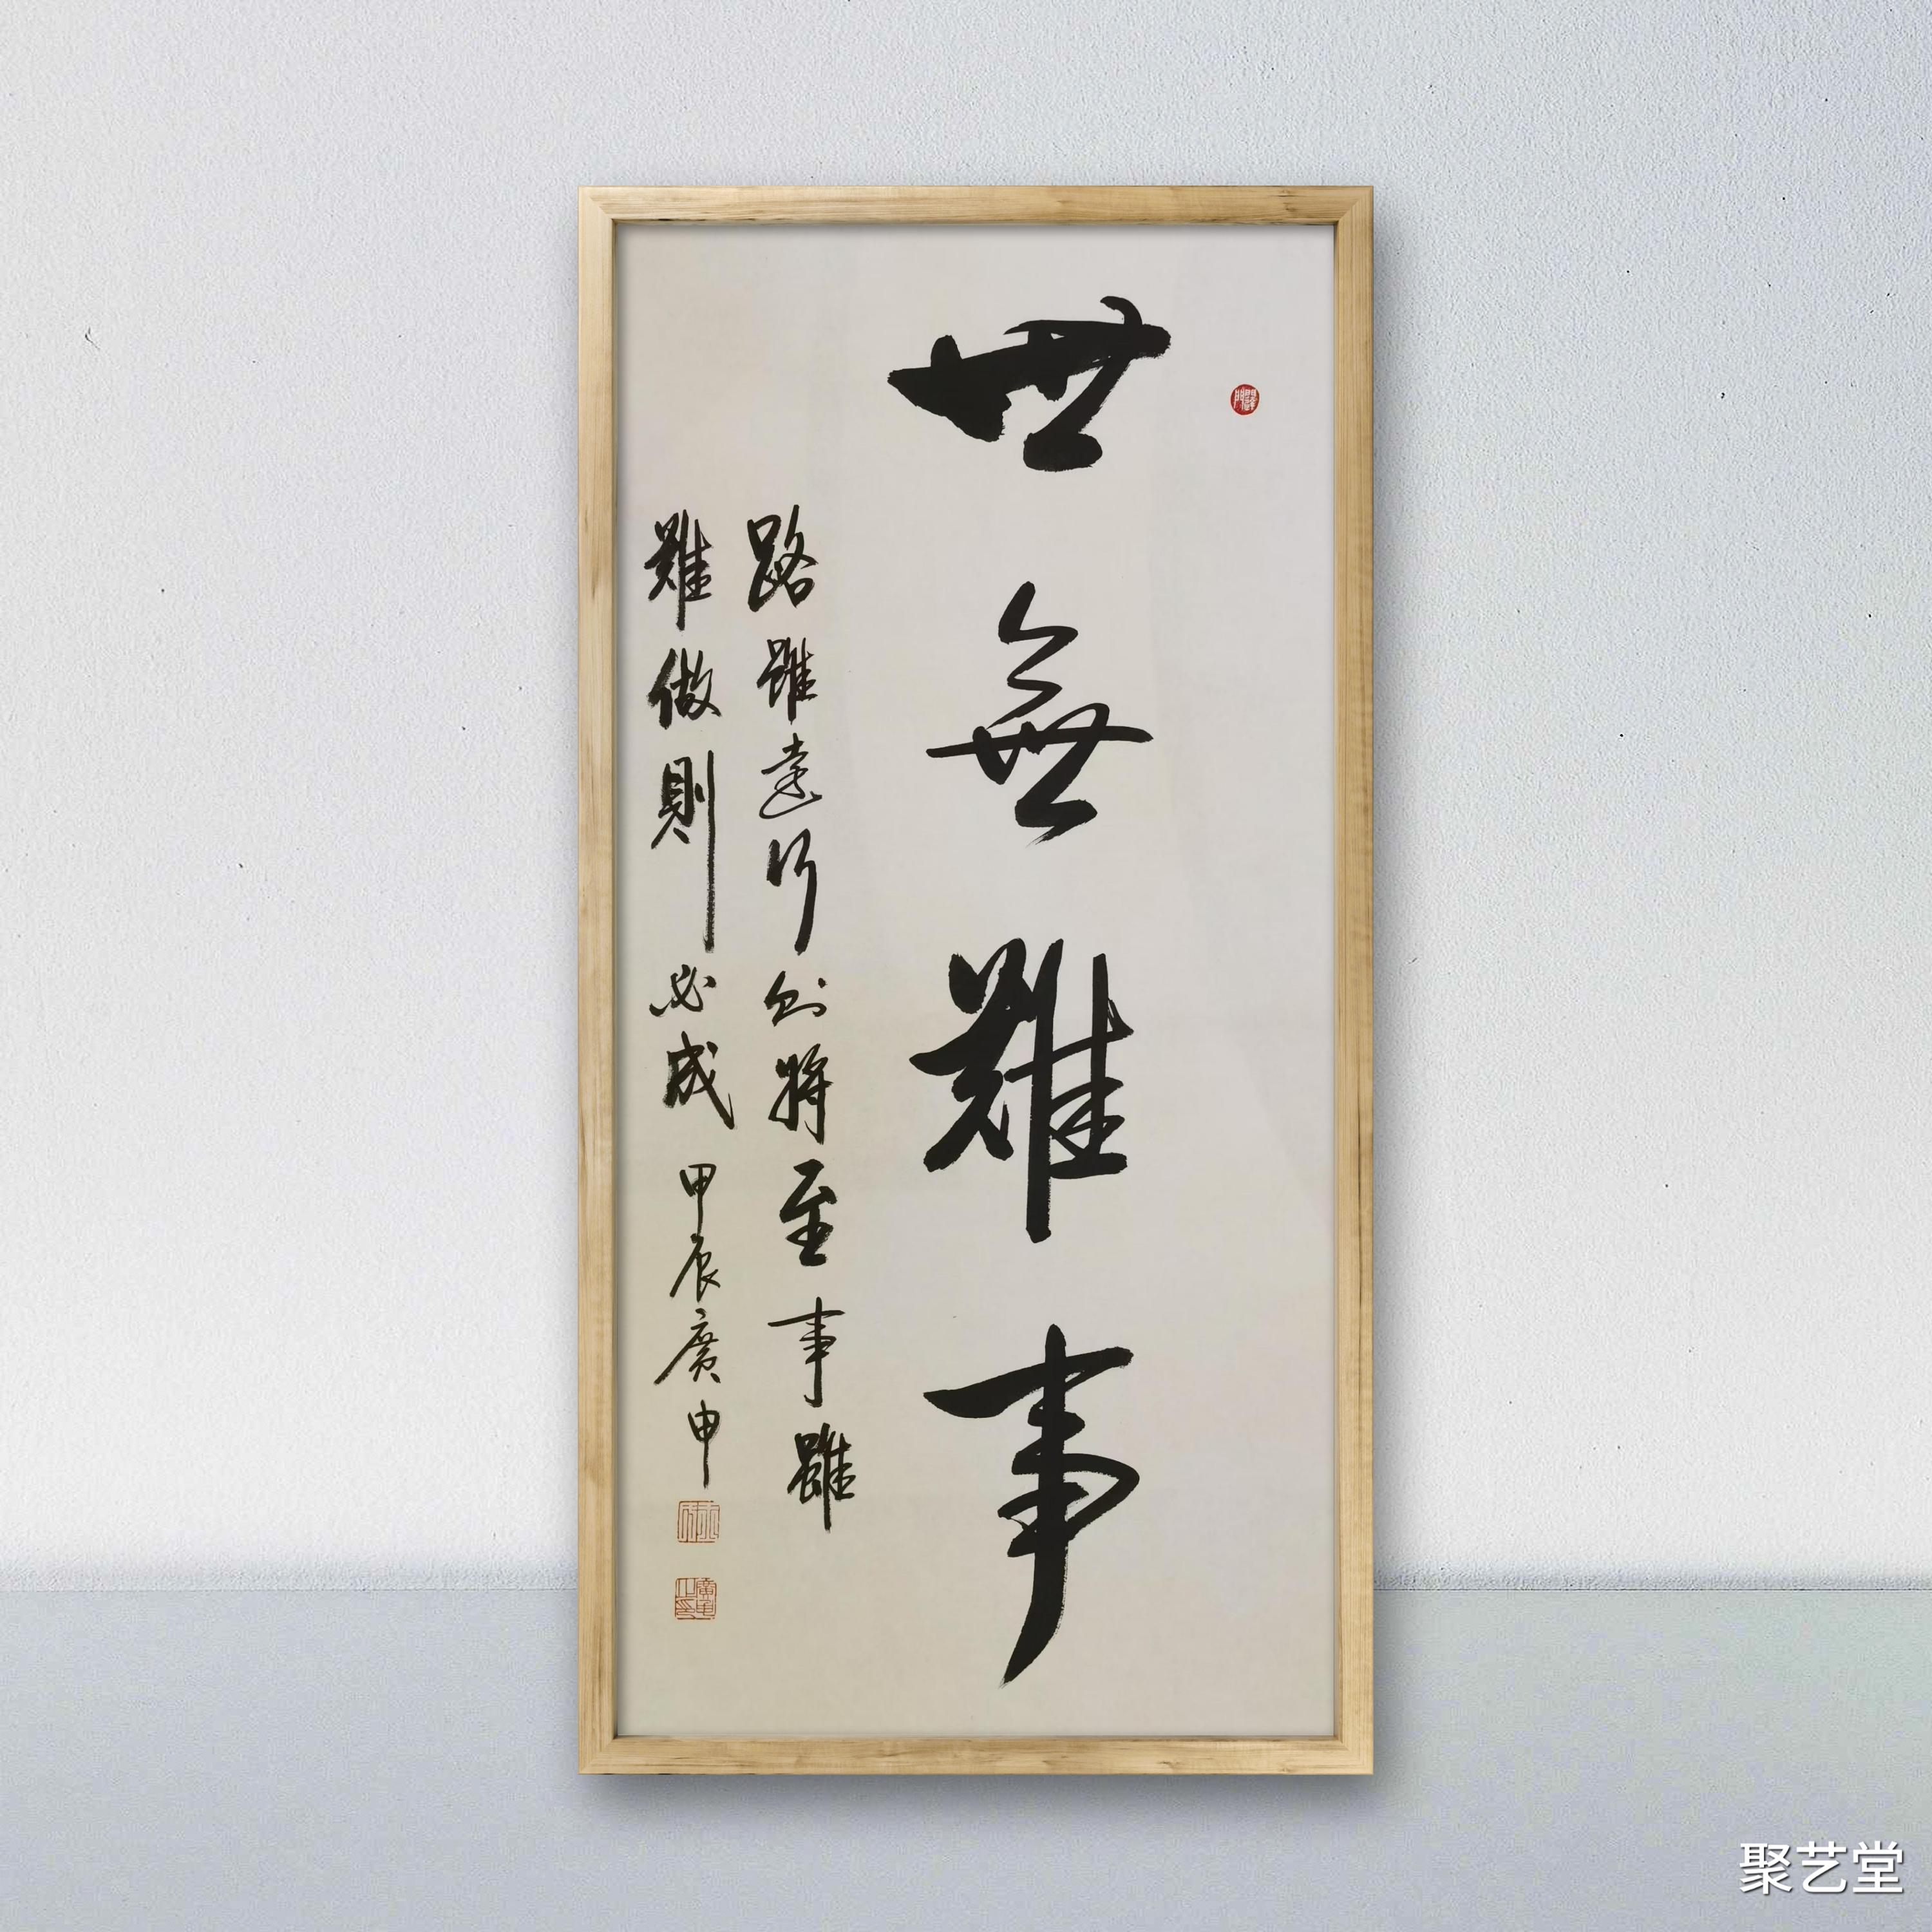 世無難事
路雖遠行则將至事雖
難做則必成甲辰廣申
聚艺堂